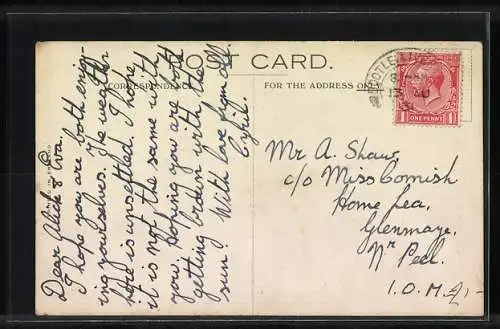 POST CARD.
CORRESPONDENCE
FOR THE ADDRESS ONLY
Dear Alick & Eva
I hope you are both enjoy-
ing yourselves. The weather
here is unsettled. I hope
it is not the same with
you. Hoping you are both
getting brown with the
sun. With love from all.
Cyril.
BOOTLE
ONE PENNY
Mr A. Shaw,
c/o Miss Cornish
Home Lea,
Glenmaye,
Nr Peel.
I.O.M.